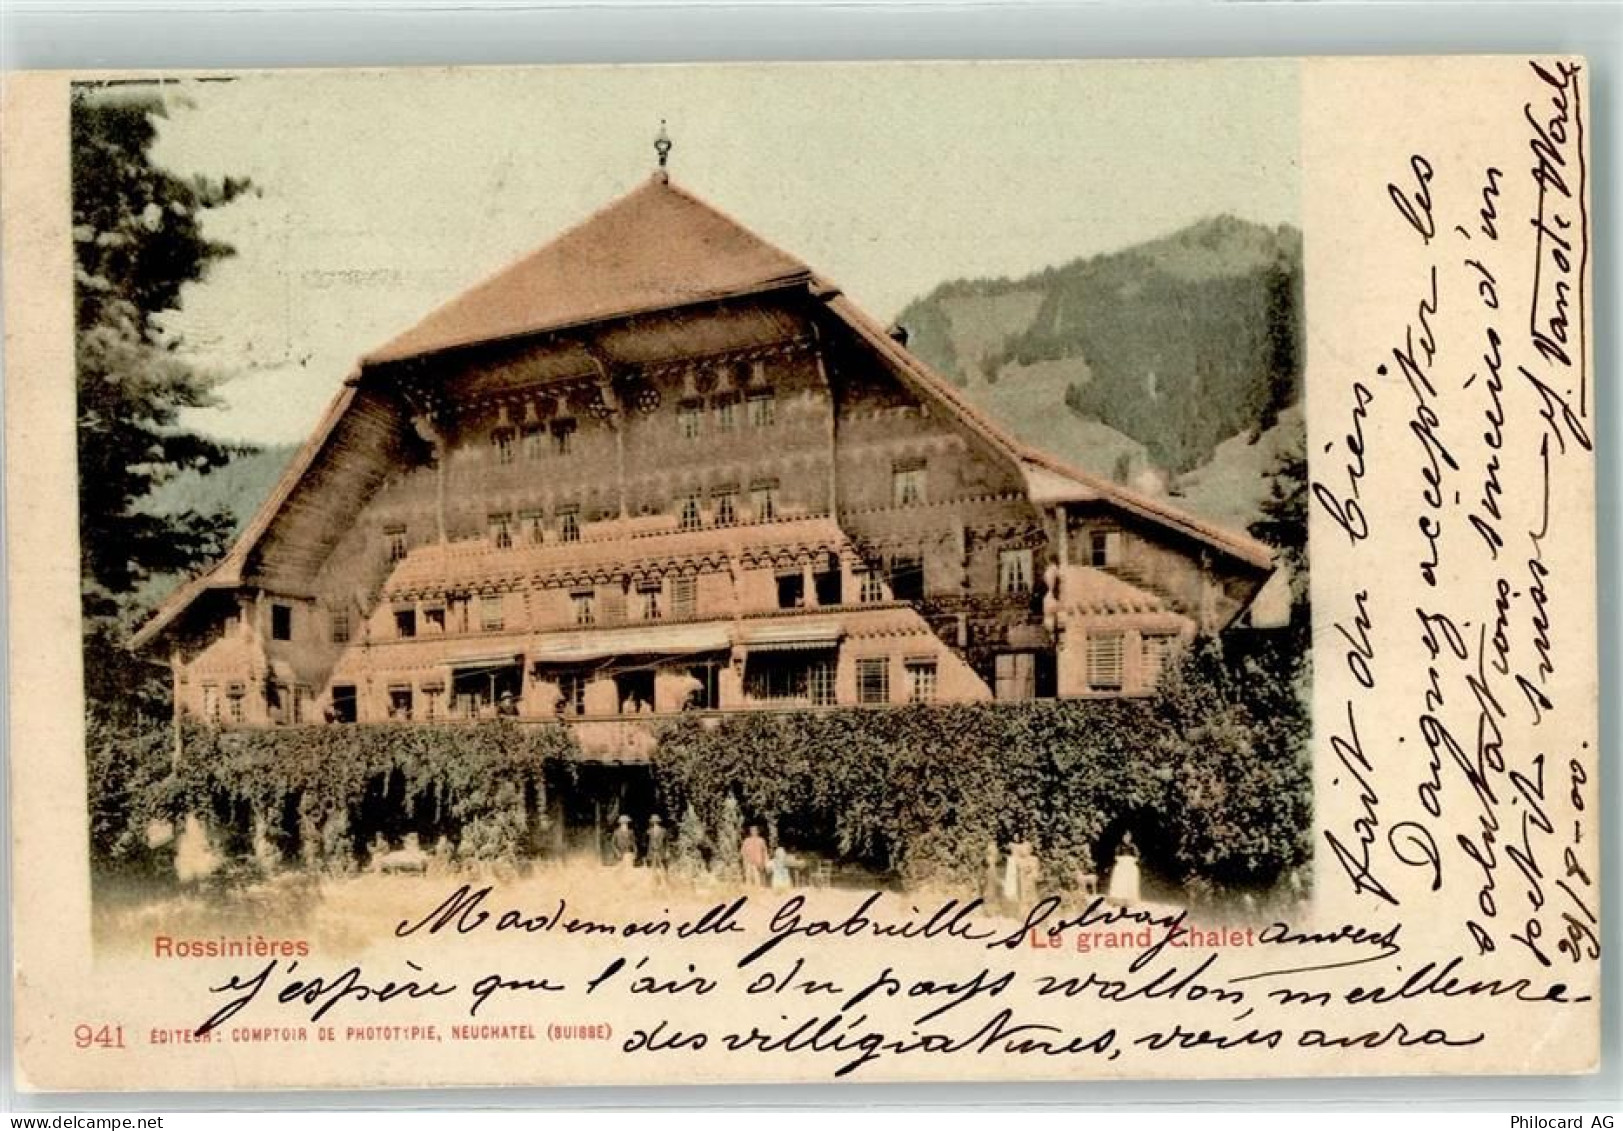 Rossinières
Le grand Chalet
941 ÉDITEUR: COMPTOIR DE PHOTOTYPIE, NEUCHATEL (SUISSE)
Mademoiselle Gabrielle Solvay Anvers
J'éspère que l'air du pays wallon, meilleure
des villégiatures, vous aura
fait du bien.
Daignez accèpter les
salutations sincères d'un
petit suisse
J. Van de Walle
29/8-00.
delcampe.net
Philocard AG